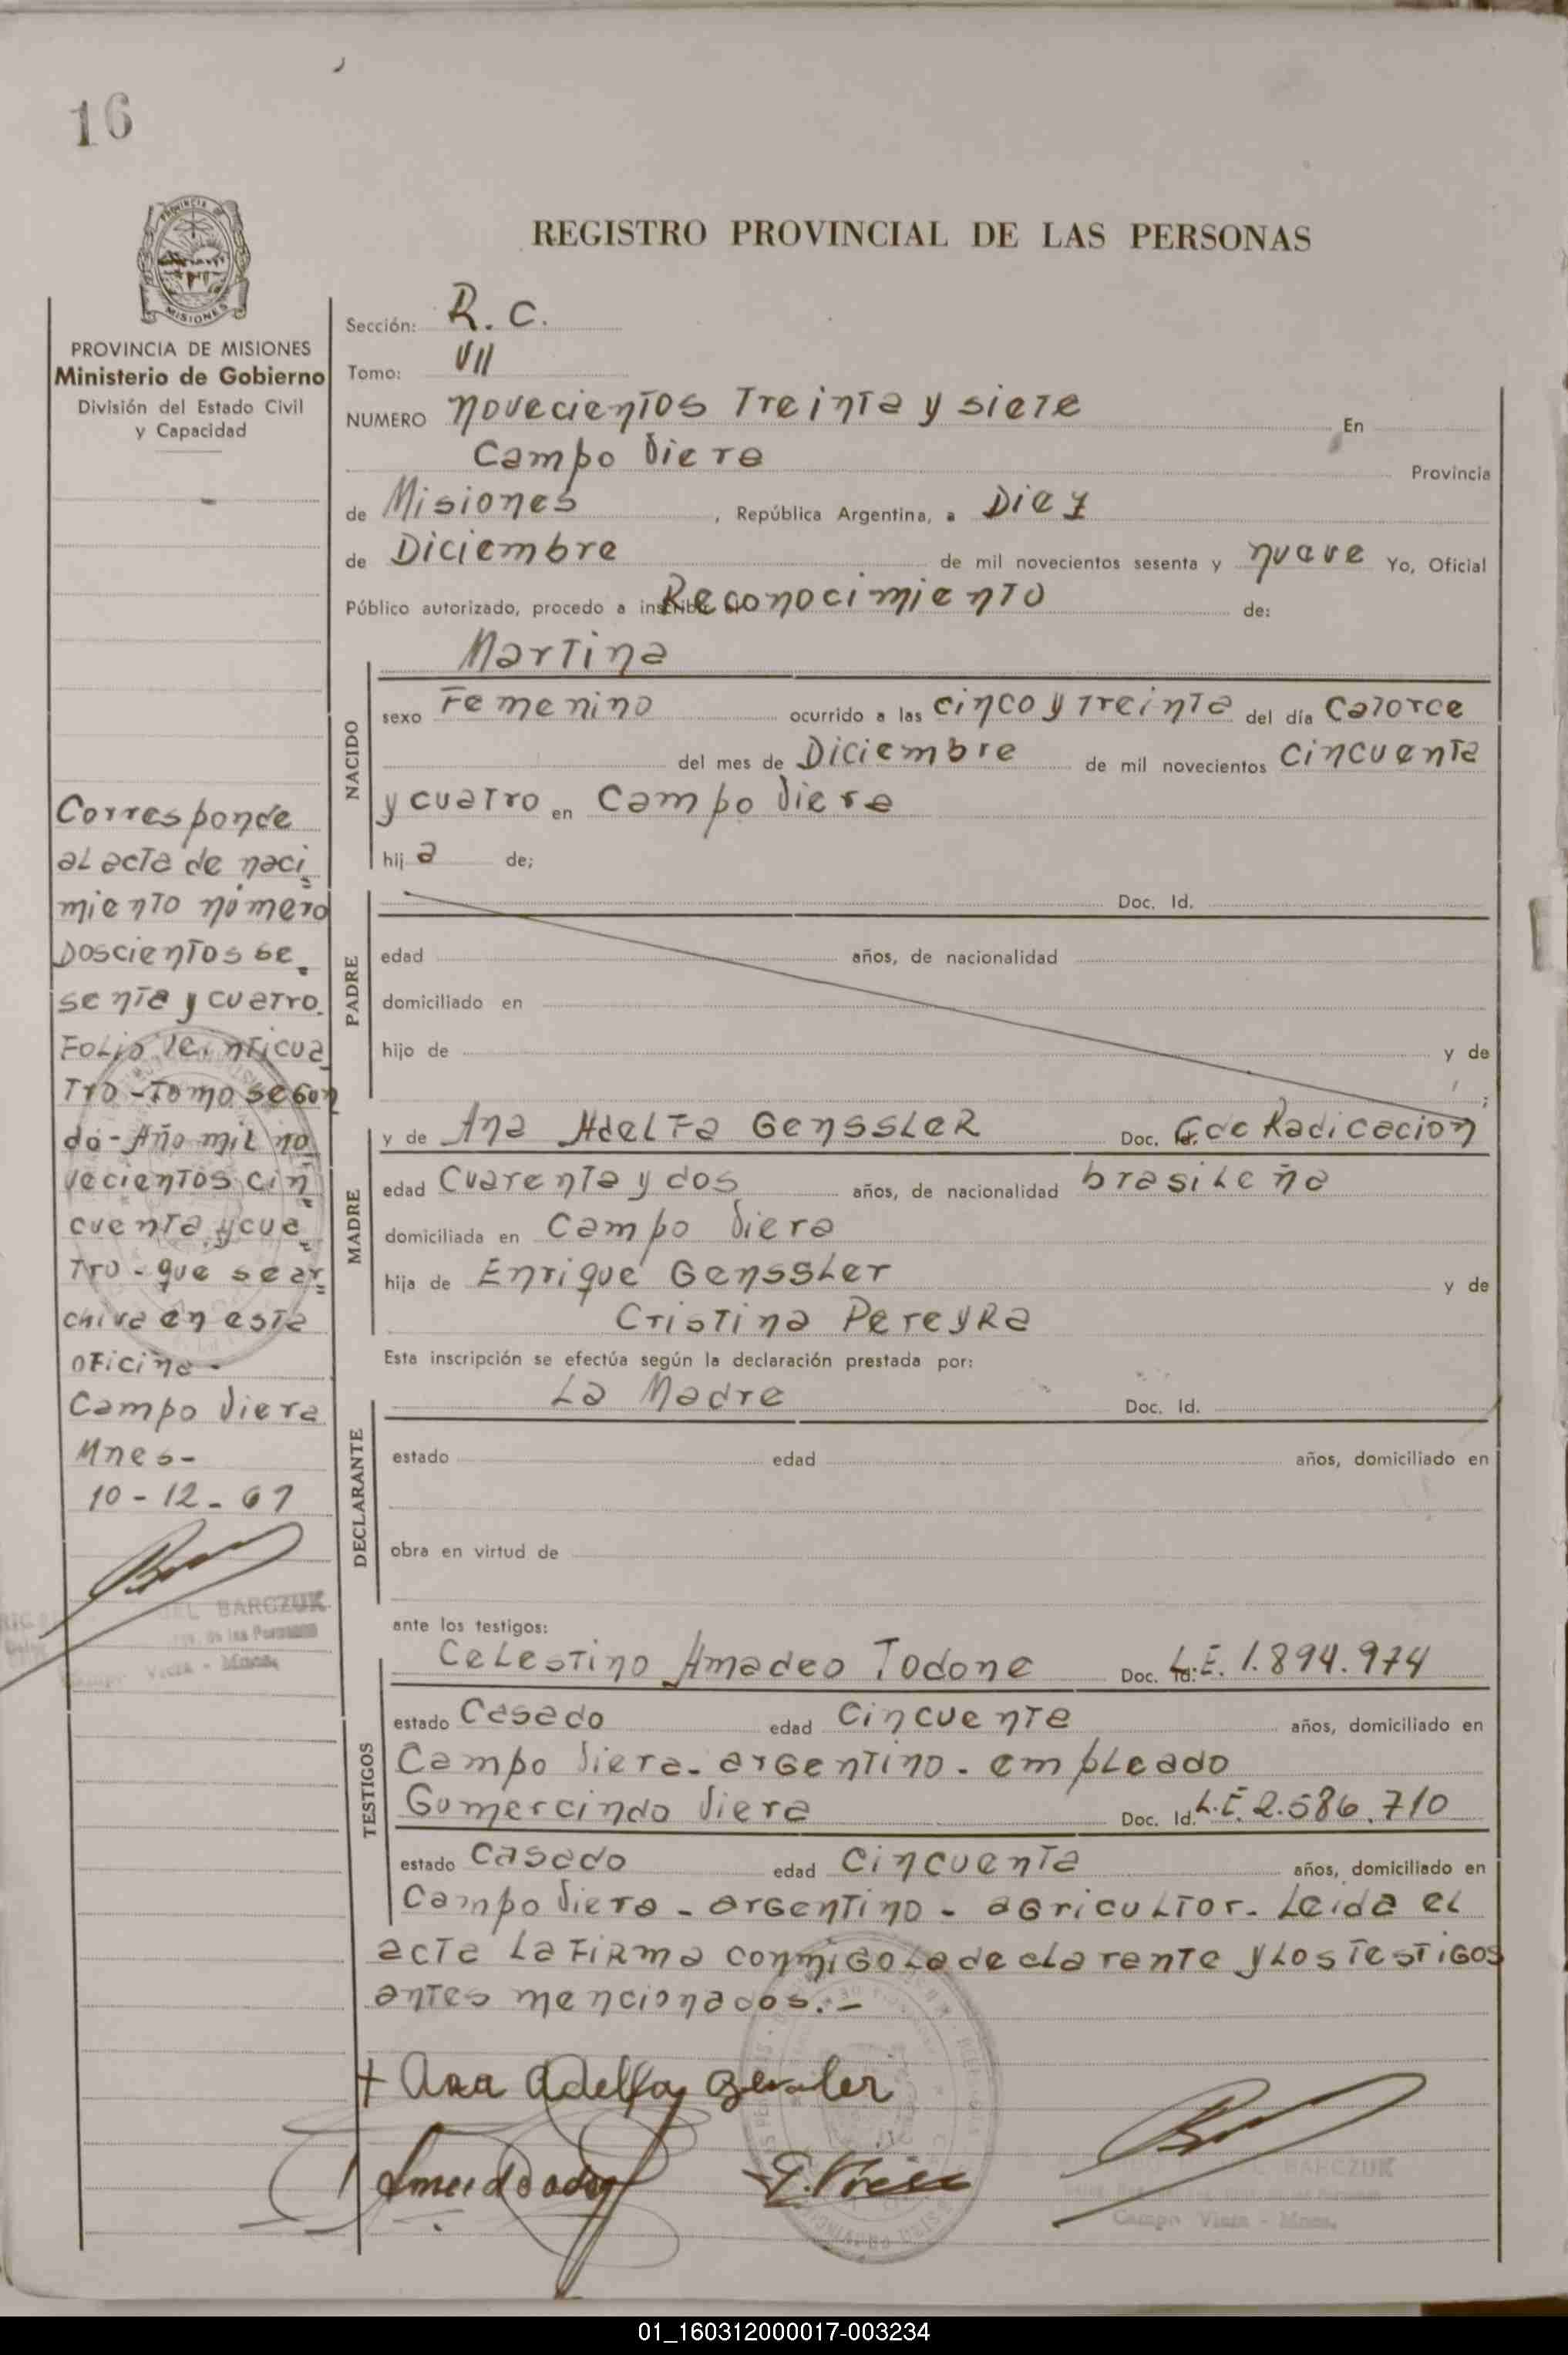 16
PROVINCIA DE
MISIONES
PROVINCIA DE MISIONES
Ministerio de Gobierno
División del Estado Civil
y Capacidad
REGISTRO PROVINCIAL DE LAS PERSONAS
Sección: R. C.
Tomo: VII
NUMERO novecientos Treinta y siete En
Campo Viera Provincia
de Misiones, República Argentina, a Diez
de Diciembre de mil novecientos sesenta y nueve Yo, Oficial
Público autorizado, procedo a inscribir el Reconocimiento de:
Martina
NACIDO
sexo Femenino ocurrido a las cinco y Treinta del día Catorce
del mes de Diciembre de mil novecientos cincuenta
y cuatro en Campo Viera
hija de;
PADRE
Doc. Id.
edad años, de nacionalidad
domiciliado en
hijo de y de
;
MADRE
y de Ana Adelfa Genssler Doc. Id. C de Radicacion
edad Cuarenta y dos años, de nacionalidad brasileña
domiciliada en Campo Viera
hija de Enrique Genssler y de
Cristina Pereyra
Esta inscripción se efectúa según la declaración prestada por:
DECLARANTE
La Madre Doc. Id.
estado edad años, domiciliado en
obra en virtud de
ante los testigos:
TESTIGOS
Celestino Amadeo Todone Doc. Id. L.E. 1.894.974
estado Casado edad Cincuenta años, domiciliado en
Campo Viera - argentino - empleado
Gumercindo Viera Doc. Id. L.E. 2.586.710
estado Casado edad Cincuenta años, domiciliado en
Campo Viera - argentino - agricultor - Leida el
acta La Firma conmigo La declarante y Los Testigos
antes mencionados. -
+ Ana Adelfa Gensler
G. Viera
BARCZUK
Campo Viera - Mnes.
Corresponde
al acta de naci
miento número
Doscientos se
senta y cuatro.
Folio Veinticua
Tro - Tomo segun
do - Año mil no
vecientos cin
cuenta y cua
Tro - que se ar
chiva en esta
oficina -
Campo Viera
Mnes -
10 - 12 - 69
BARCZUK
Reg. de las Personas
Campo Viera - Mnes.
01_160312000017-003234